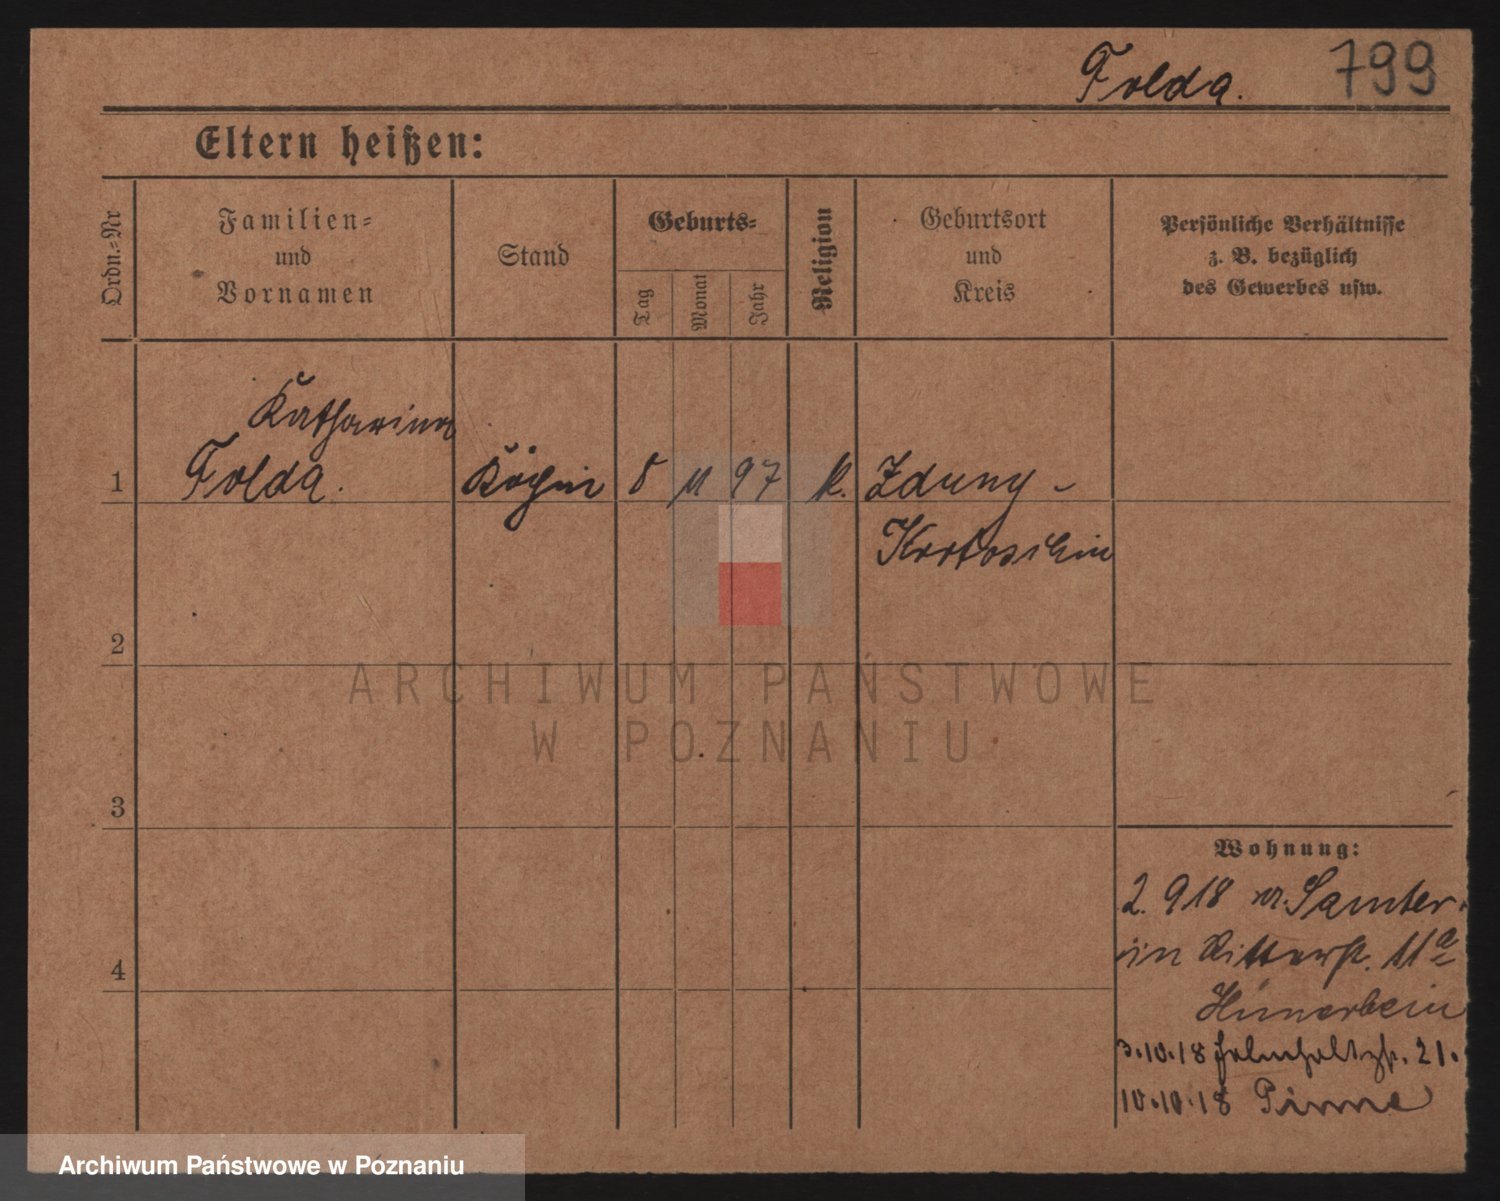 Folda. 799
Eltern heißen:
Ordn.=Nr
Familien=
und
Vornamen
Stand
Geburts=
Tag
Monat
Jahr
Religion
Geburtsort
und
Kreis
Persönliche Verhältnisse
z. B. bezüglich
des Gewerbes usw.
Katharina
1 Folda. Köchin 8 11 97 k. Zduny -
Krotoschin
2
3
4
Wohnung:
2. 9 18 v. Samter.
in Ritterstr. 11a
Hünerbein
3.10.18 Helmholtzstr. 21.
10.10.18 Pinne
ARCHIWUM PAŃSTWOWE
W POZNANIU
Archiwum Państwowe w Poznaniu